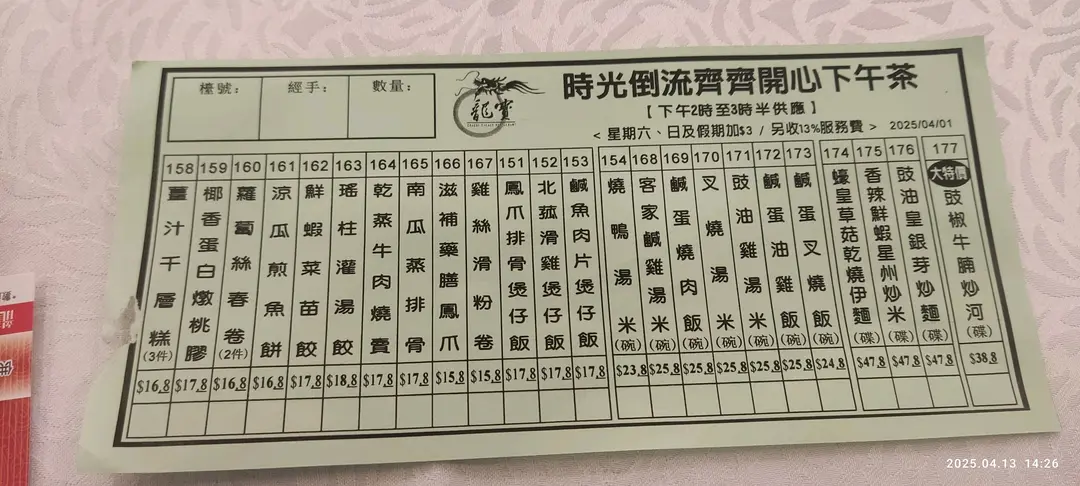 檯號：
經手：
數量：
龍寶
時光倒流齊齊開心下午茶
【下午2時至3時半供應】
< 星期六、日及假期加$3 / 另收13%服務費 > 2025/04/01
158 薑汁千層糕(3件) $16.8
159 椰香蛋白燉桃膠 $17.8
160 蘿蔔絲春卷(2件) $16.8
161 涼瓜煎魚餅 $16.8
162 鮮蝦菜苗餃 $17.8
163 瑤柱灌湯餃 $18.8
164 乾蒸牛肉燒賣 $17.8
165 南瓜蒸排骨 $17.8
166 滋補藥膳鳳爪 $15.8
167 雞絲滑粉卷 $15.8
151 鳳爪排骨煲仔飯 $17.8
152 北菰滑雞煲仔飯 $17.8
153 鹹魚肉片煲仔飯 $17.8
154 燒鴨湯米(碗) $23.8
168 客家鹹雞湯米(碗) $25.8
169 鹹蛋燒肉飯(碗) $25.8
170 叉燒湯米(碗) $25.8
171 豉油雞湯米(碗) $25.8
172 鹹蛋油雞飯(碗) $25.8
173 鹹蛋叉燒飯(碗) $24.8
174 蠔皇草菇乾燒伊麵(碟) $47.8
175 香辣鮮蝦星州炒米(碟) $47.8
176 豉油皇銀芽炒麵(碟) $47.8
177 大特價 豉椒牛腩炒河(碟) $38.8
2025.04.13 14:26